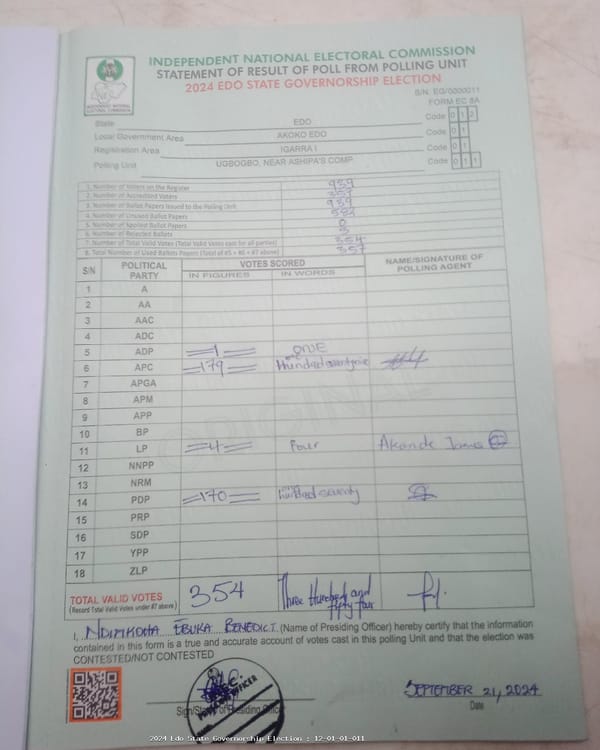 INDEPENDENT NATIONAL ELECTORAL COMMISSION
STATEMENT OF RESULT OF POLL FROM POLLING UNIT
2024 EDO STATE GOVERNORSHIP ELECTION
S/N. EG/0000011
FORM EC 8A
State EDO Code 0 1 2
Local Government Area AKOKO EDO Code 0 1
Registration Area IGARRA I Code 0 1
Polling Unit UGBOGBO, NEAR ASHIPA'S COMP Code 0 1 1
1. Number of Voters on the Register 939
2. Number of Accredited Voters 357
3. Number of Ballot Papers Issued to the Polling Unit 939
4. Number of Unused Ballot Papers 582
5. Number of Spoiled Ballot Papers 0
6. Number of Rejected Ballots 3
7. Number of Total Valid Votes (Total Valid Votes cast for all parties) 354
8. Total Number of Used Ballots Papers (Total of #5 + #6 + #7 above) 357
S/N POLITICAL PARTY VOTES SCORED NAME/SIGNATURE OF POLLING AGENT
IN FIGURES IN WORDS
1 A
2 AA
3 AAC
4 ADC
5 ADP 1 ONE
6 APC 179 Hundred
7 APGA
8 APM
9 APP
10 BP
11 LP 4 Four Akande James
12 NNPP
13 NRM
14 PDP 170 hundred seventy
15 PRP
16 SDP
17 YPP
18 ZLP
TOTAL VALID VOTES 354 Three Hundred and fifty four
(Record Total Valid Votes under #7 above)
I, EBUKA BENEDICT (Name of Presiding Officer) hereby certify that the information
contained in this form is a true and accurate account of votes cast in this polling Unit and that the election was
CONTESTED/NOT CONTESTED
SEPTEMBER 21, 2024
Sign/Stamp of Presiding Officer Date
2024 Edo State Governorship Election : 12-01-01-011